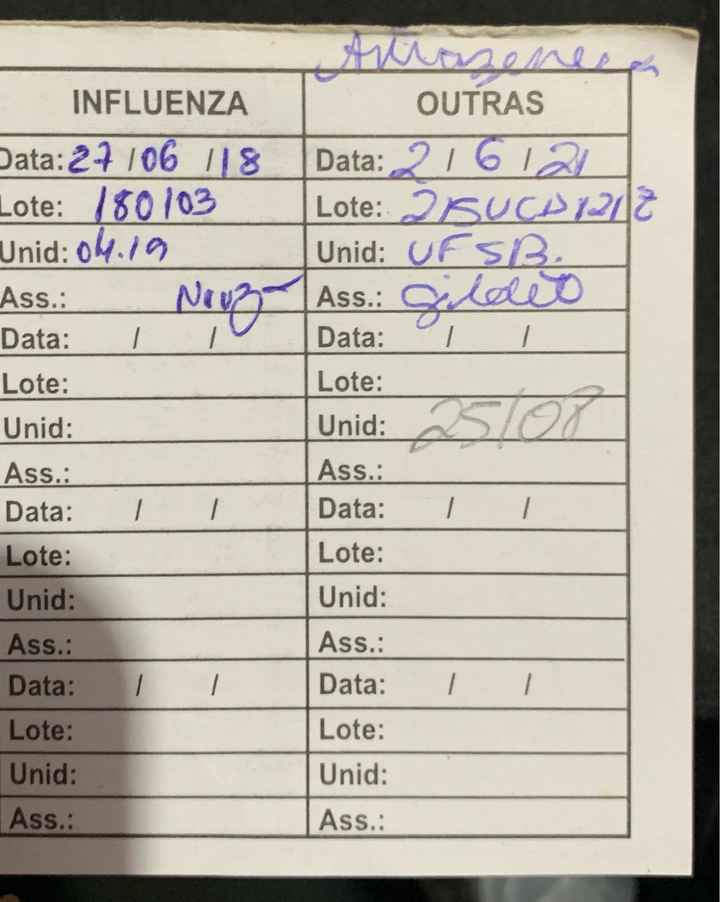 Astrazeneca
INFLUENZA OUTRAS
Data: 27/06/18 Data: 2/6/21
Lote: 180103 Lote:
Unid: 04.19 Unid: UFSB.
Ass.: Ass.:
Data: / / Data: / /
Lote: Lote:
Unid: Unid: 25/08
Ass.: Ass.:
Data: / / Data: / /
Lote: Lote:
Unid: Unid:
Ass.: Ass.:
Data: / / Data: / /
Lote: Lote:
Unid: Unid:
Ass.: Ass.: